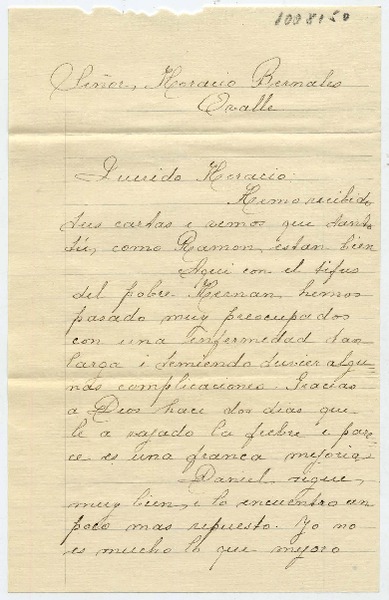 1008150
Señor, Horacio Bernales
Ovalle
Querido Horacio:
Hemo recibido
tus cartas i vemos que tanto
tú, como Ramon, estan bien
Aqui con el tifus
del pobre Hernan, hemos
pasado muy preocupados
con una enfermedad tan
larga i temiendo tuvier algu-
nas complicaciones. Gracias
a Dios hace dos dias que
le a vajado la fiebre i pare
ce es una franca mejoria
Daniel sigue,
muy bien, i lo encuentro un
poco mas repuesto. Yo no
es mucho lo que mejoro